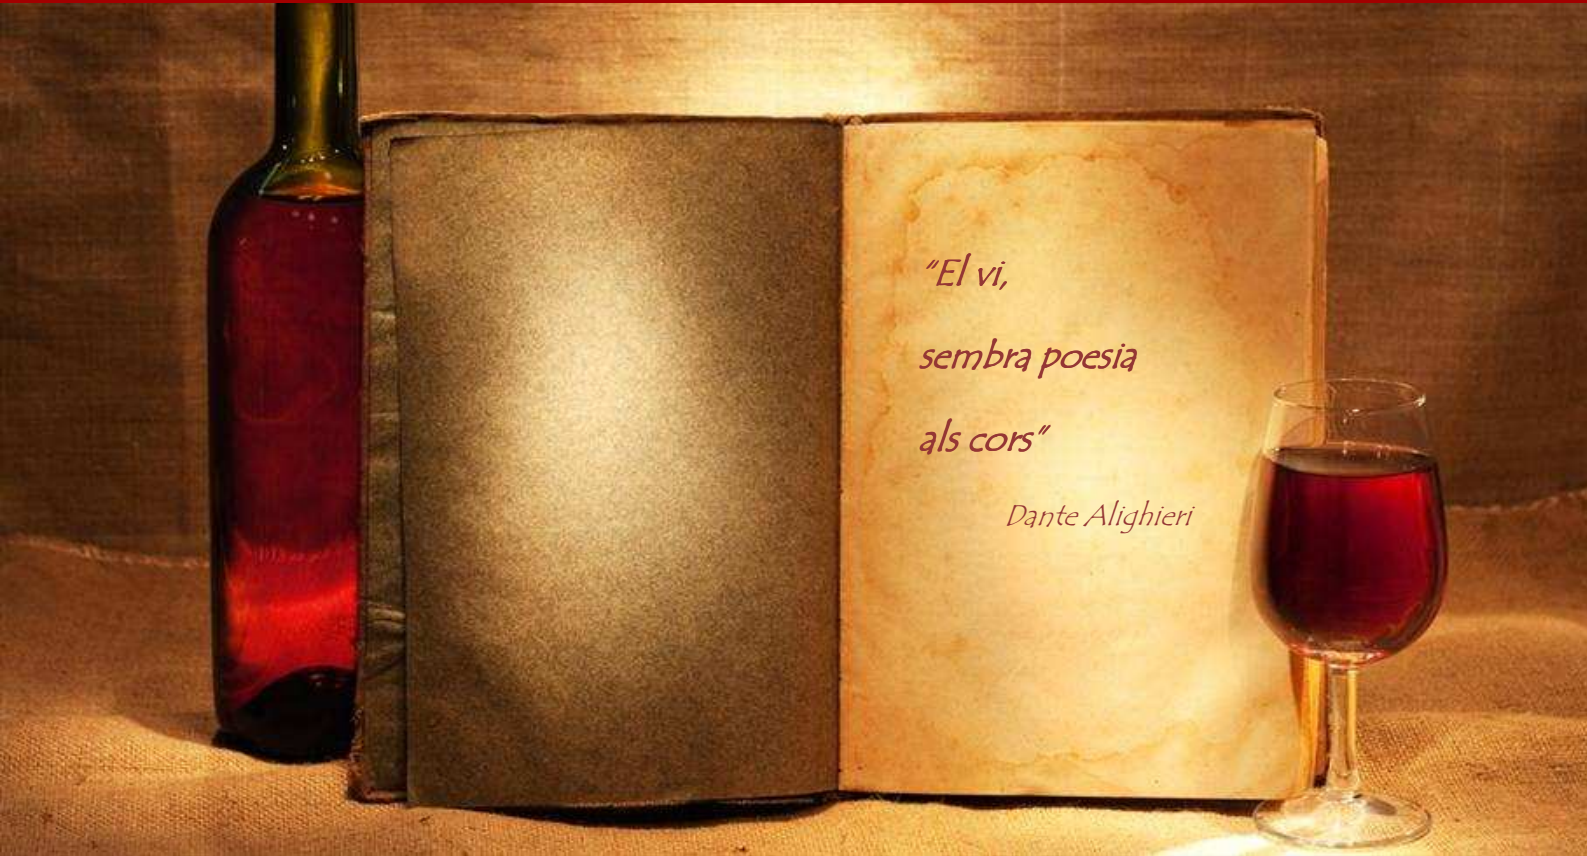 “El vi,
sembra poesia
als cors”
Dante Alighieri